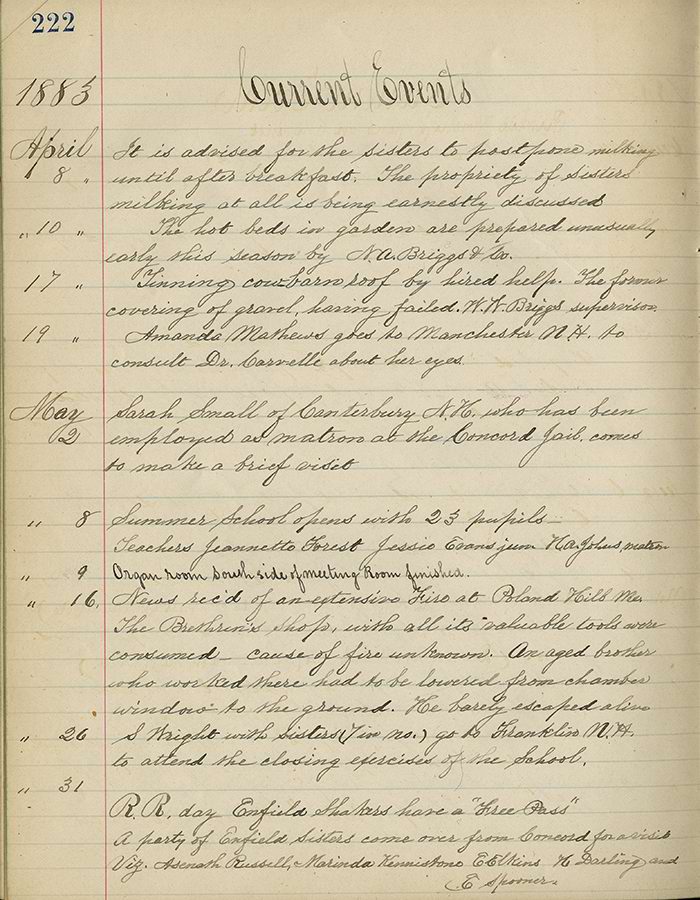 222
1883 Current Events
April It is advised for the sisters to postpone milking
8 " until after breakfast. The propriety of sisters
milking at all is being earnestly discussed
" 10 " The hot beds in garden are prepared unusually
early this season by N.A. Briggs & Co.
17 " Tinning cow barn roof by hired help. The former
covering of gravel, having failed. W.W. Briggs supervisor.
19 " Amanda Mathews goes to Manchester N.H. to
consult Dr. Carvelle about her eyes.
May Sarah Small of Canterbury N.H. who has been
2 employed as matron at the Concord Jail, comes
to make a brief visit
" 8 Summer School opens with 23 pupils
Teachers Jeannette Forest Jessie Evans jun N.A. Johns, matron
" 9 Organ room south side of meeting Room finished.
" 16, News rec'd of an extensive Fire at Poland Hill Me.
The Brethrin's shop, with all its valuable tools were
consumed _ cause of fire unknown. An aged brother
who worked there had to be lowered from chamber
window to the ground. He barely escaped alive
" 26 S Wright with sisters (7 in no.) go to Franklin N.H.
to attend the closing exercises of the School.
" 31
R.R. day Enfield Shakers have a "Free Pass"
A party of Enfield Sisters come over from Concord for a visit
Viz. Asenath Russell, Marinda Kennistone E Elkins H Darling and
E Spooner.